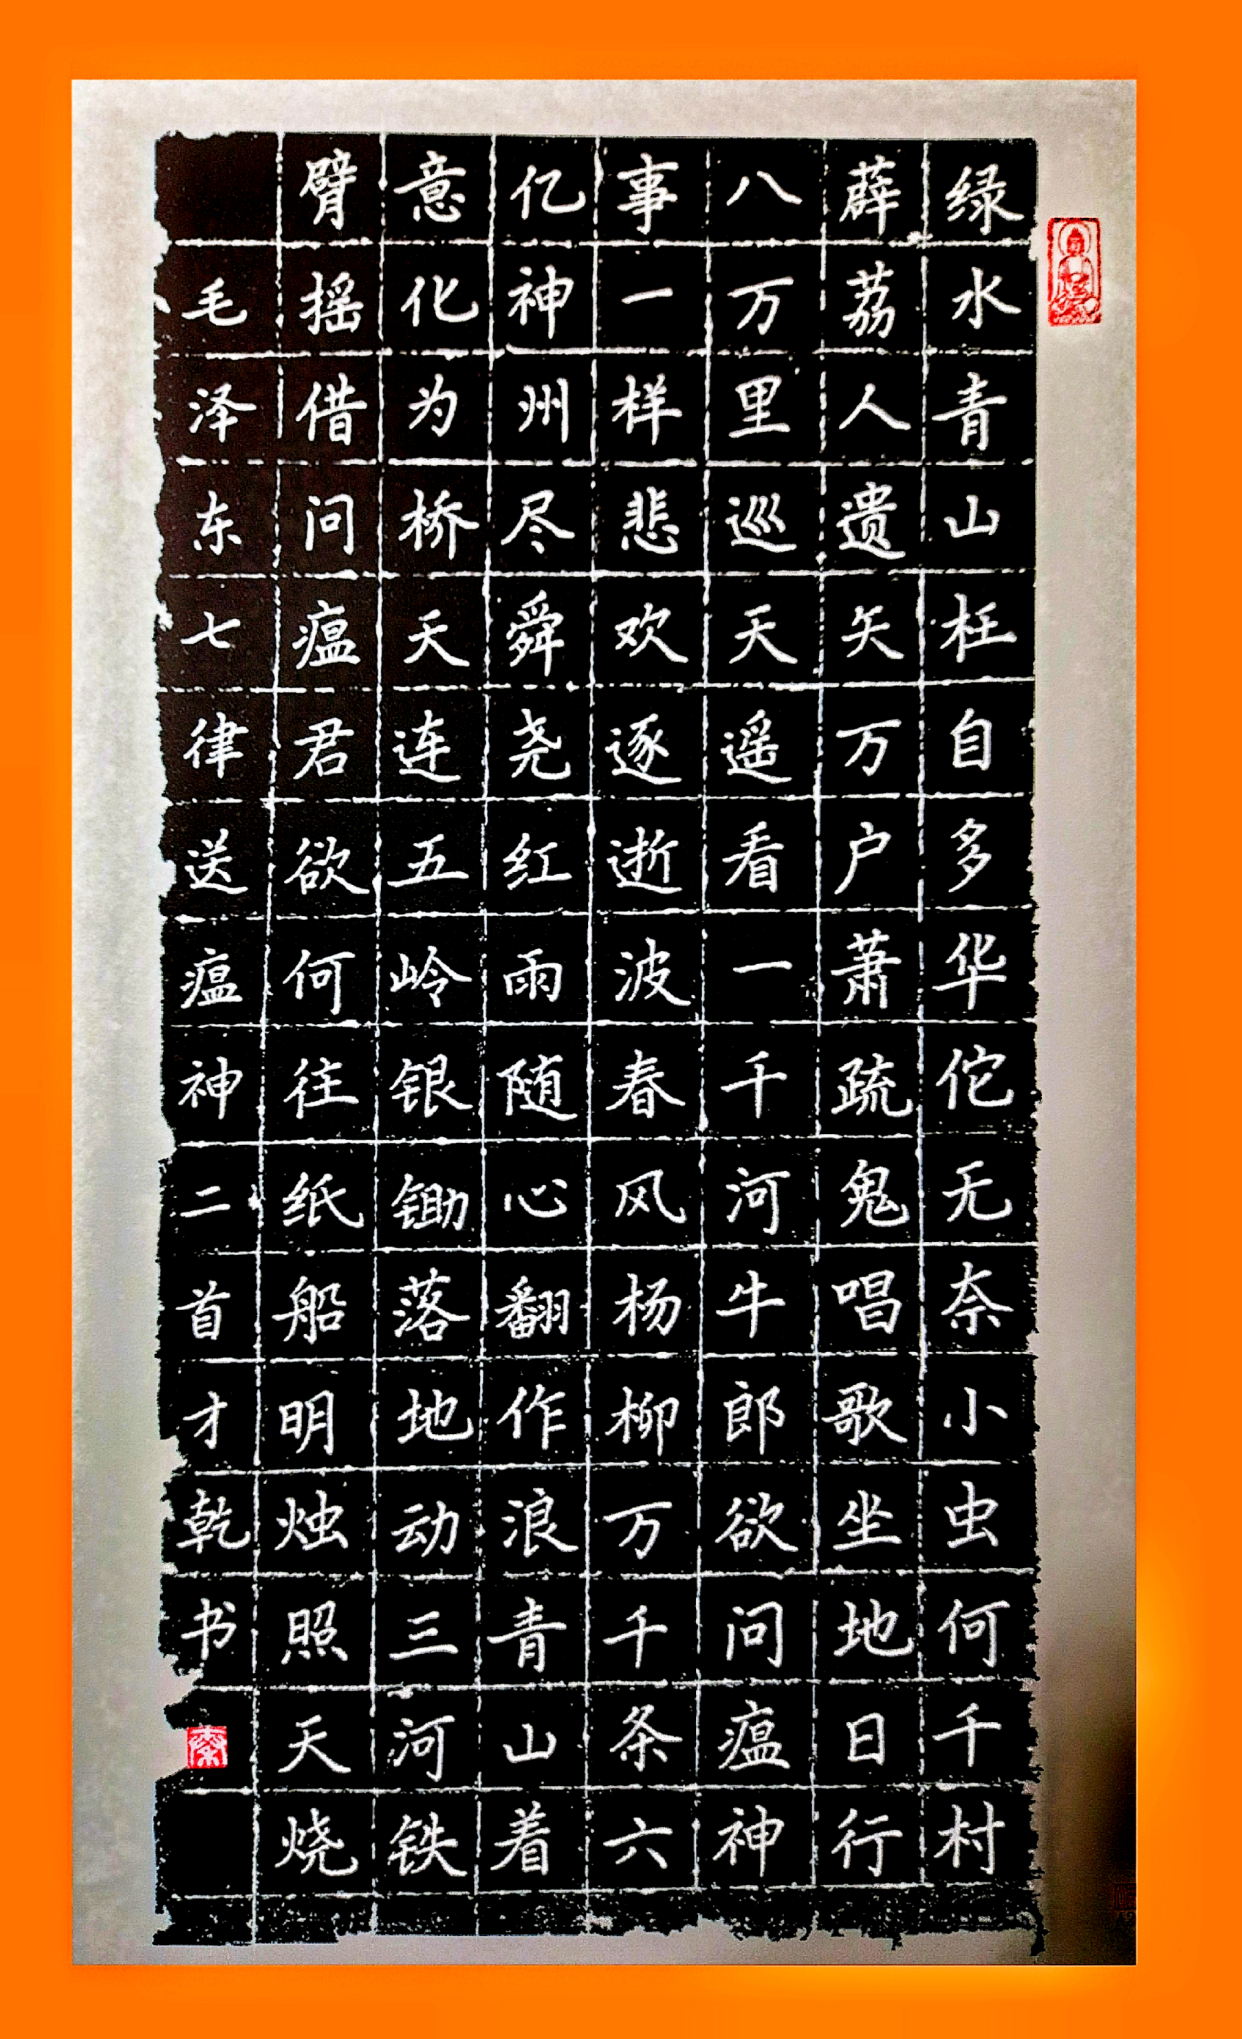 绿水青山枉自多华佗无奈小虫何千村
薜荔人遗矢万户萧疏鬼唱歌坐地日行
八万里巡天遥看一千河牛郎欲问瘟神
事一样悲欢逐逝波春风杨柳万千条六
亿神州尽舜尧红雨随心翻作浪青山着
意化为桥天连五岭银锄落地动三河铁
臂摇借问瘟君欲何往纸船明烛照天烧
毛泽东七律送瘟神二首才乾书